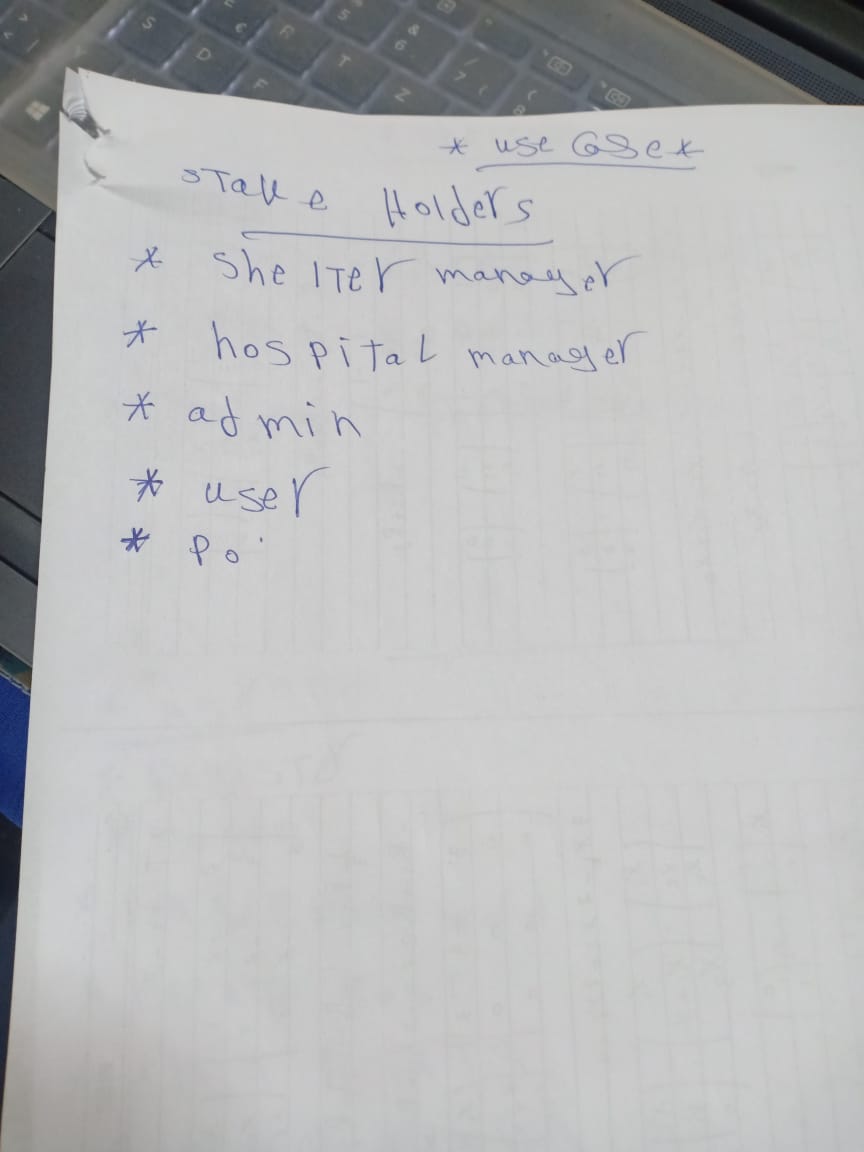 * use Case *
STake Holders
* shelTer manager
* hospital manager
* admin
* user
* Po